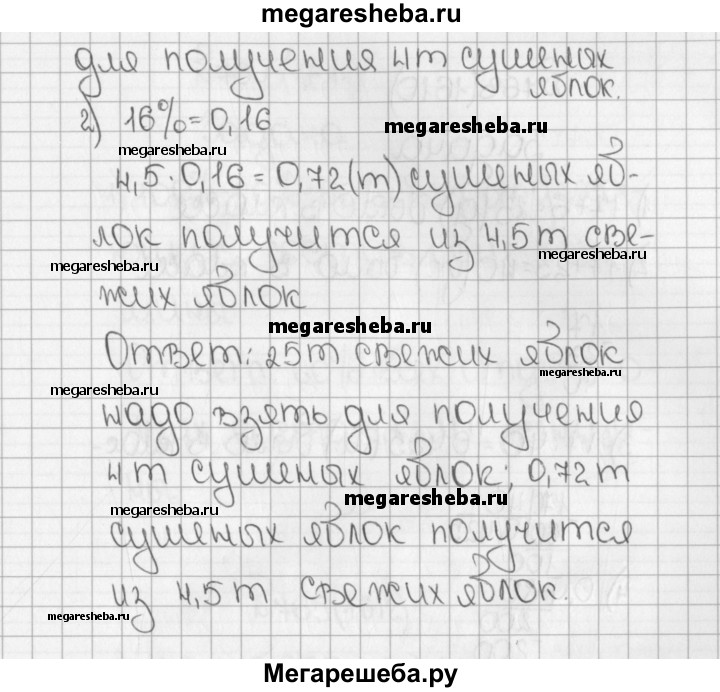 megaresheba.ru
для получения 4т сушеных
яблок.
2) 16%=0,16
megaresheba.ru
megaresheba.ru
4,5·0,16=0,72(т) сушеных яб-
лок получится из 4,5т све-
megaresheba.ru
megaresheba.ru
жих яблок
megaresheba.ru
Ответ: 25т свежих яблок
megaresheba.ru
megaresheba.ru
надо взять для получения
4т сушеных яблок; 0,72т
megaresheba.ru
megaresheba.ru
сушеных яблок получится
из 4,5т свежих яблок.
megaresheba.ru
Мегарешеба.ру